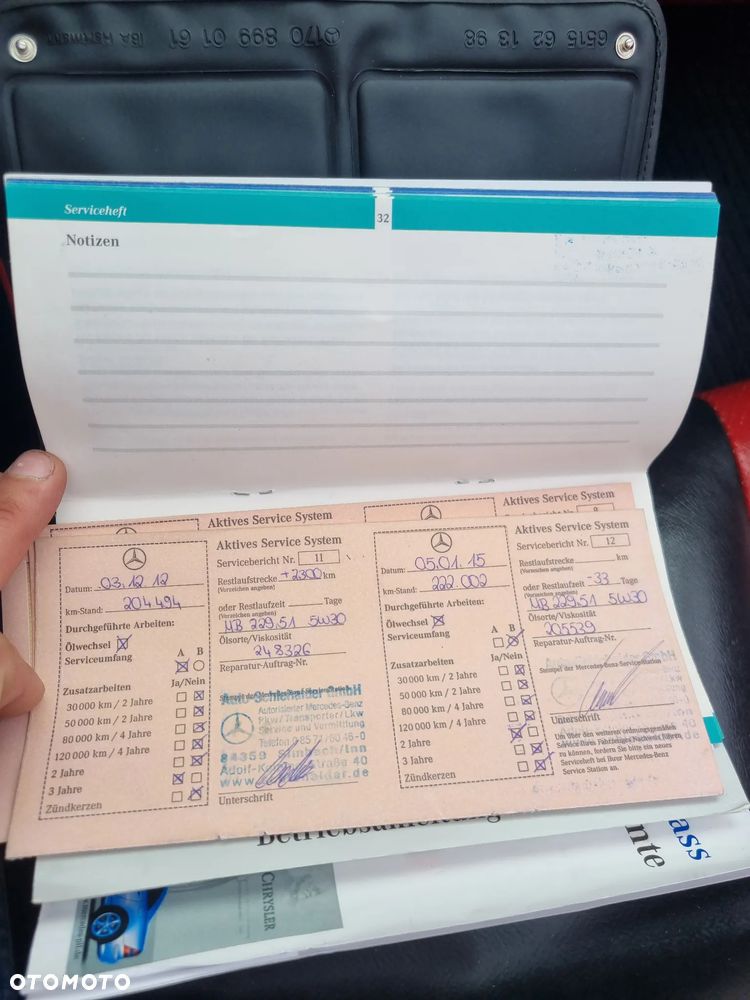 6515 62 13 98
170 899 01 61
Serviceheft
32
Notizen
Aktives Service System
Servicebericht Nr. 9
Aktives Service System
Servicebericht Nr. 11
Datum: 03.12.12
Restlaufstrecke +2300 km
(Vorzeichen angeben)
km-Stand: 204 494
oder Restlaufzeit Tage
(Vorzeichen angeben)
Durchgeführte Arbeiten:
MB 229.51 5W30
Ölsorte/Viskosität
Ölwechsel
Serviceumfang
A B
248326
Reparatur-Auftrag-Nr.
Zusatzarbeiten
Ja/Nein
30 000 km / 2 Jahre
50 000 km / 2 Jahre
80 000 km / 4 Jahre
120 000 km / 4 Jahre
2 Jahre
3 Jahre
Zündkerzen
Autorisierter Mercedes-Benz
Pkw/Transporter/Lkw
Service und Vermittlung
84359 Simbach/Inn
Unterschrift
Aktives Service System
Servicebericht Nr. 12
Datum: 05.01.15
Restlaufstrecke km
(Vorzeichen angeben)
km-Stand: 222.002
oder Restlaufzeit -33 Tage
(Vorzeichen angeben)
Durchgeführte Arbeiten:
MB 229.51 5W30
Ölsorte/Viskosität
Ölwechsel
Serviceumfang
A B
205539
Reparatur-Auftrag-Nr.
Zusatzarbeiten
Ja/Nein
30 000 km / 2 Jahre
50 000 km / 2 Jahre
80 000 km / 4 Jahre
120 000 km / 4 Jahre
2 Jahre
3 Jahre
Zündkerzen
Stempel der Mercedes-Benz-Service-Station
Unterschrift
Um über den weiteren ordnungsgemäßen
Service Ihres Fahrzeuges Nachweis führen
zu können, fordern Sie bitte ein neues
Serviceheft bei Ihrer Mercedes-Benz
Service Station an.
Betriebsanleitung
ass
nte
CHRYSLER
OTOMOTO